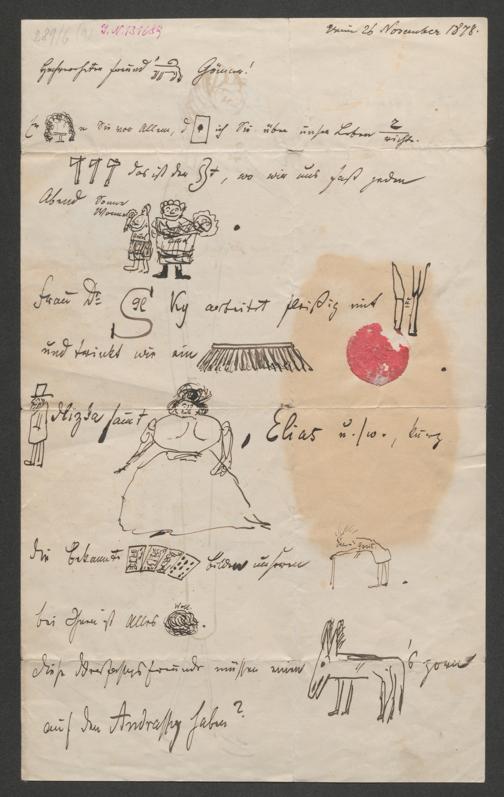 J.N. 131689
Wien 26 November 1878.
Hochverehrter Freund Gönner!
Sie vor Allem, d ich Sie über unser Leben
richte.
das ist der Z t, wo wir uns fast jeden
Abend Sonne
Wonne
Frau Dr Ky arbeitet fleißig mit
und trinkt wie ein
samt , Elias u.s.w., kurz
die Bekannte bilden unseren
bei Ihnen ist Alles Woll .
Diese freunde müssen einen 's zorn
auf den Andrassy haben?